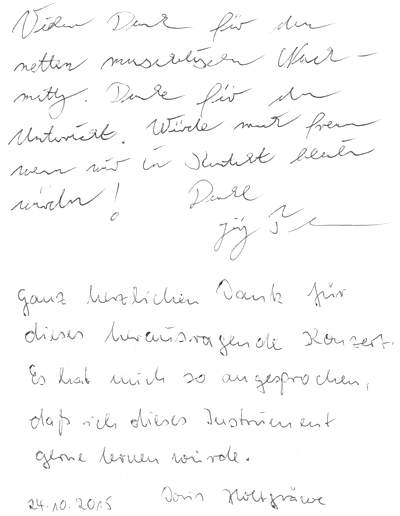 Vielen Dank für den
netten musikalischen Nach-
mittag. Danke für den
Unterricht. Würde mich freuen
wenn wir in Kontakt bleiben
würden! Danke
Jörg
Ganz herzlichen Dank für
dieses herausragende Konzert.
Es hat mich so angesprochen,
daß ich dieses Instrument
gerne lernen würde.
24.10.2015 Doris Holtgräwe